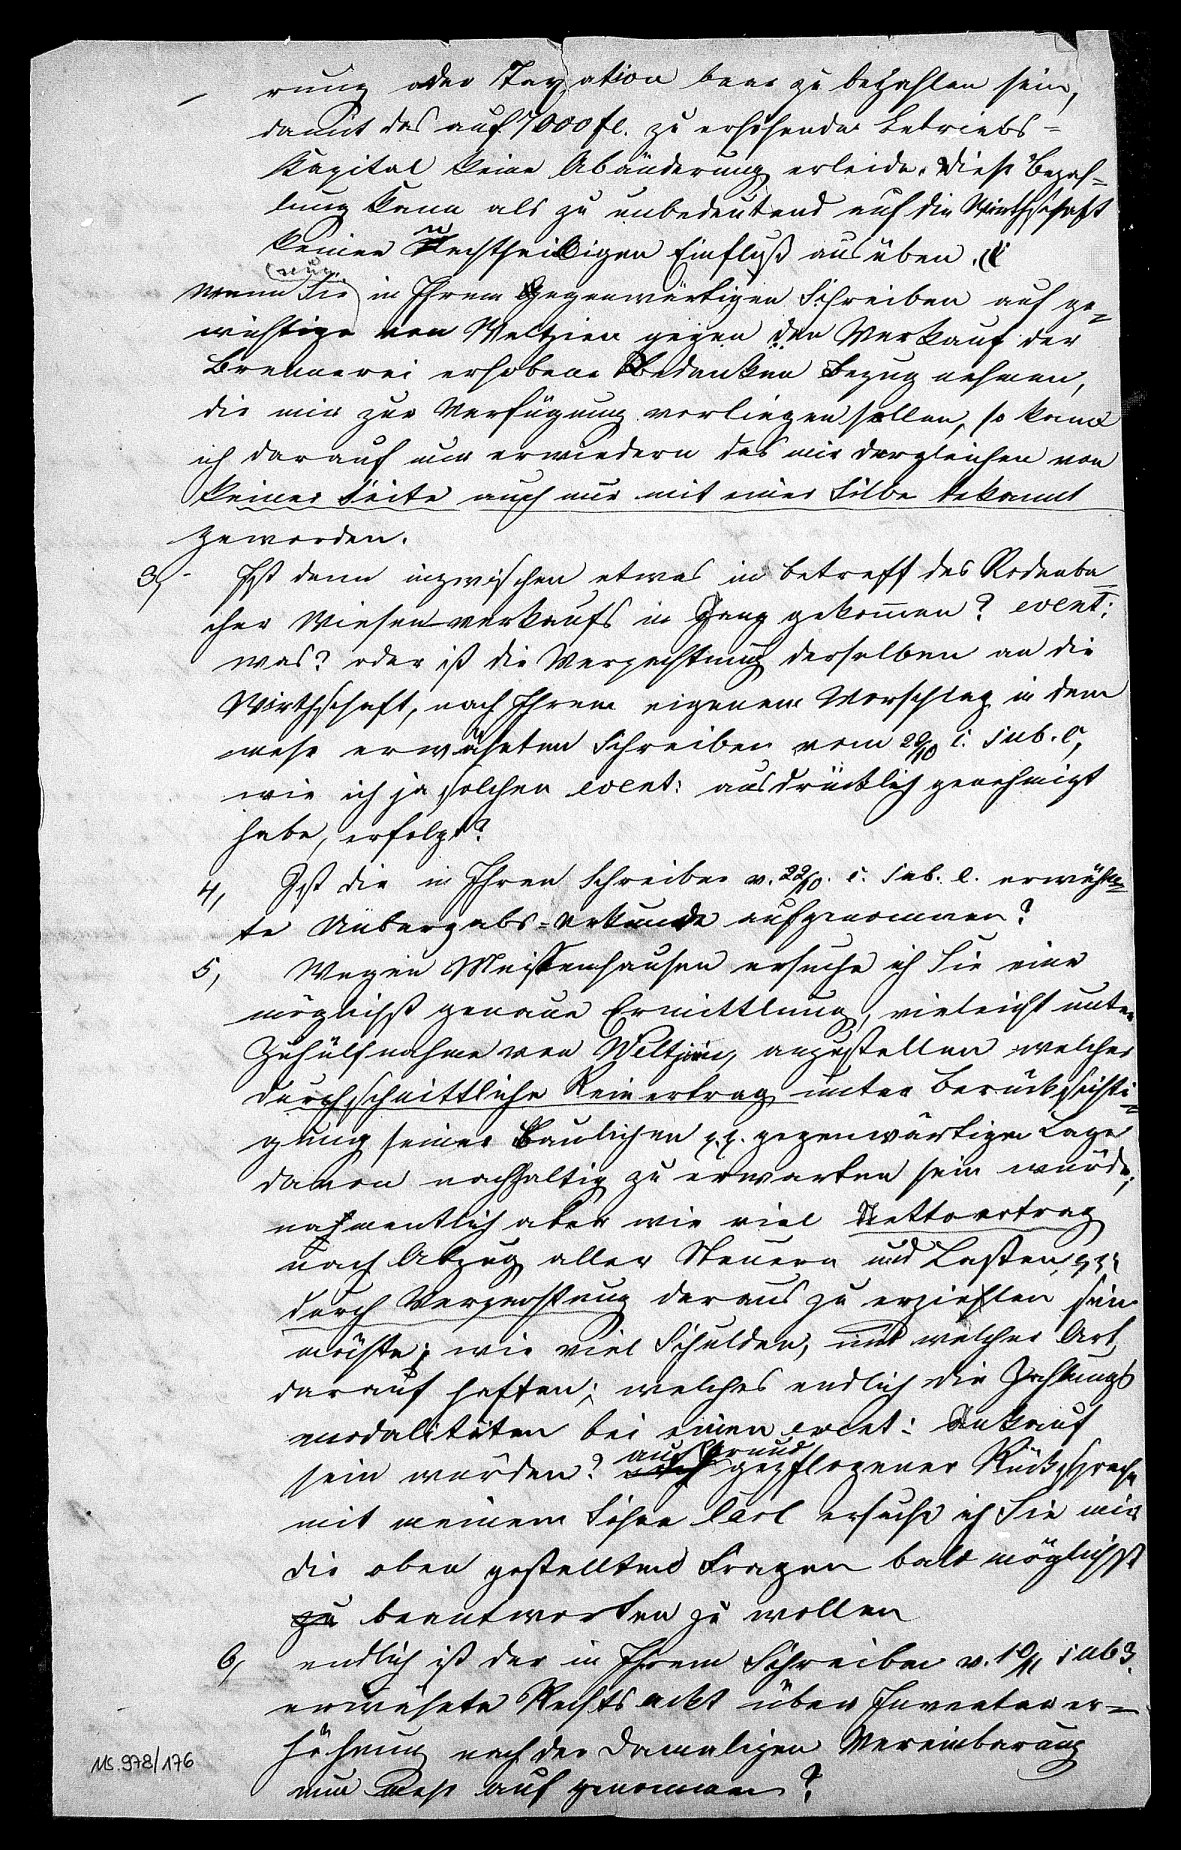 rung oder Taxation baar zu bezahlen sein,
damit das auf 7000 fl. zu erhöhende Betriebs=
Kapital keine Abänderung erleide. Diese Bezah=
lung kann als zu unbedeutend auf die Wirthschaft
keinen nachtheiligen Einfluß ausüben.
Wenn Sie nun in Ihrem gegenwärtigen Schreiben auf ge=
wichtige von Weltzien gegen den Verkauf der
Brennerei erhobene Bedenken Bezug nehmen,
die mir zur Verfügung vorliegen sollen, so kann
ich darauf nur erwiedern das mir dergleichen von
keiner Seite auch nur mit einer Silbe bekannt
geworden.
3, Ist denn inzwischen etwas in betreff des Rodenba=
cher Wiesenverkaufs in Gang gekommen? event:
was? oder ist die Verpachtung derselben an die
Wirthschaft, nach Ihrem eigenem Vorschlag in dem
mehr erwähnten Schreiben vom 22/10 c. sub. e,
wie ich ja solchen event: ausdrücklich genehmigt
habe, erfolgt?
4, Ist die in Ihren Schreiben v. 22/10. c. sub. e. erwähn=
te Uebergabs=Urkunde aufgenommen?
5, Wegen Meissenhausen ersuche ich Sie eine
möglichst genaue Ermittlung, vieleicht unter
Zuhülfnahme von Weltzien, anzustellen welcher
durchschnittliche Reinertrag unter Berücksichti=
gung seiner baulichen p.p. gegenwärtigen Lage
davon nachhaltig zu erwarten sein würde;
nahmentlich aber wie viel Nettoertrag
nach Abzug aller Steuern und Lasten, pp:
durch Verpachtung daraus zu erziehlen sein
möchte; wie viel Schulden, und welcher Art,
darauf haften; welches endlich die Zahlungs
modalitäten bei einen event: Ankauf
sein würden? auf Grund gepflogener Rücksprache
mit meinem Sohne Carl ersuche ich Sie mir
die oben gestellten Fragen bald möglichst
zu beantworten zu wollen
6, endlich ist der in Ihrem Schreiben v. 10/11 sub 3.
erwähnte Rechtsackt über Inventarer=
höhung nach der damaligen Vereinbarung
nun auf genommen?
MS. 978/176